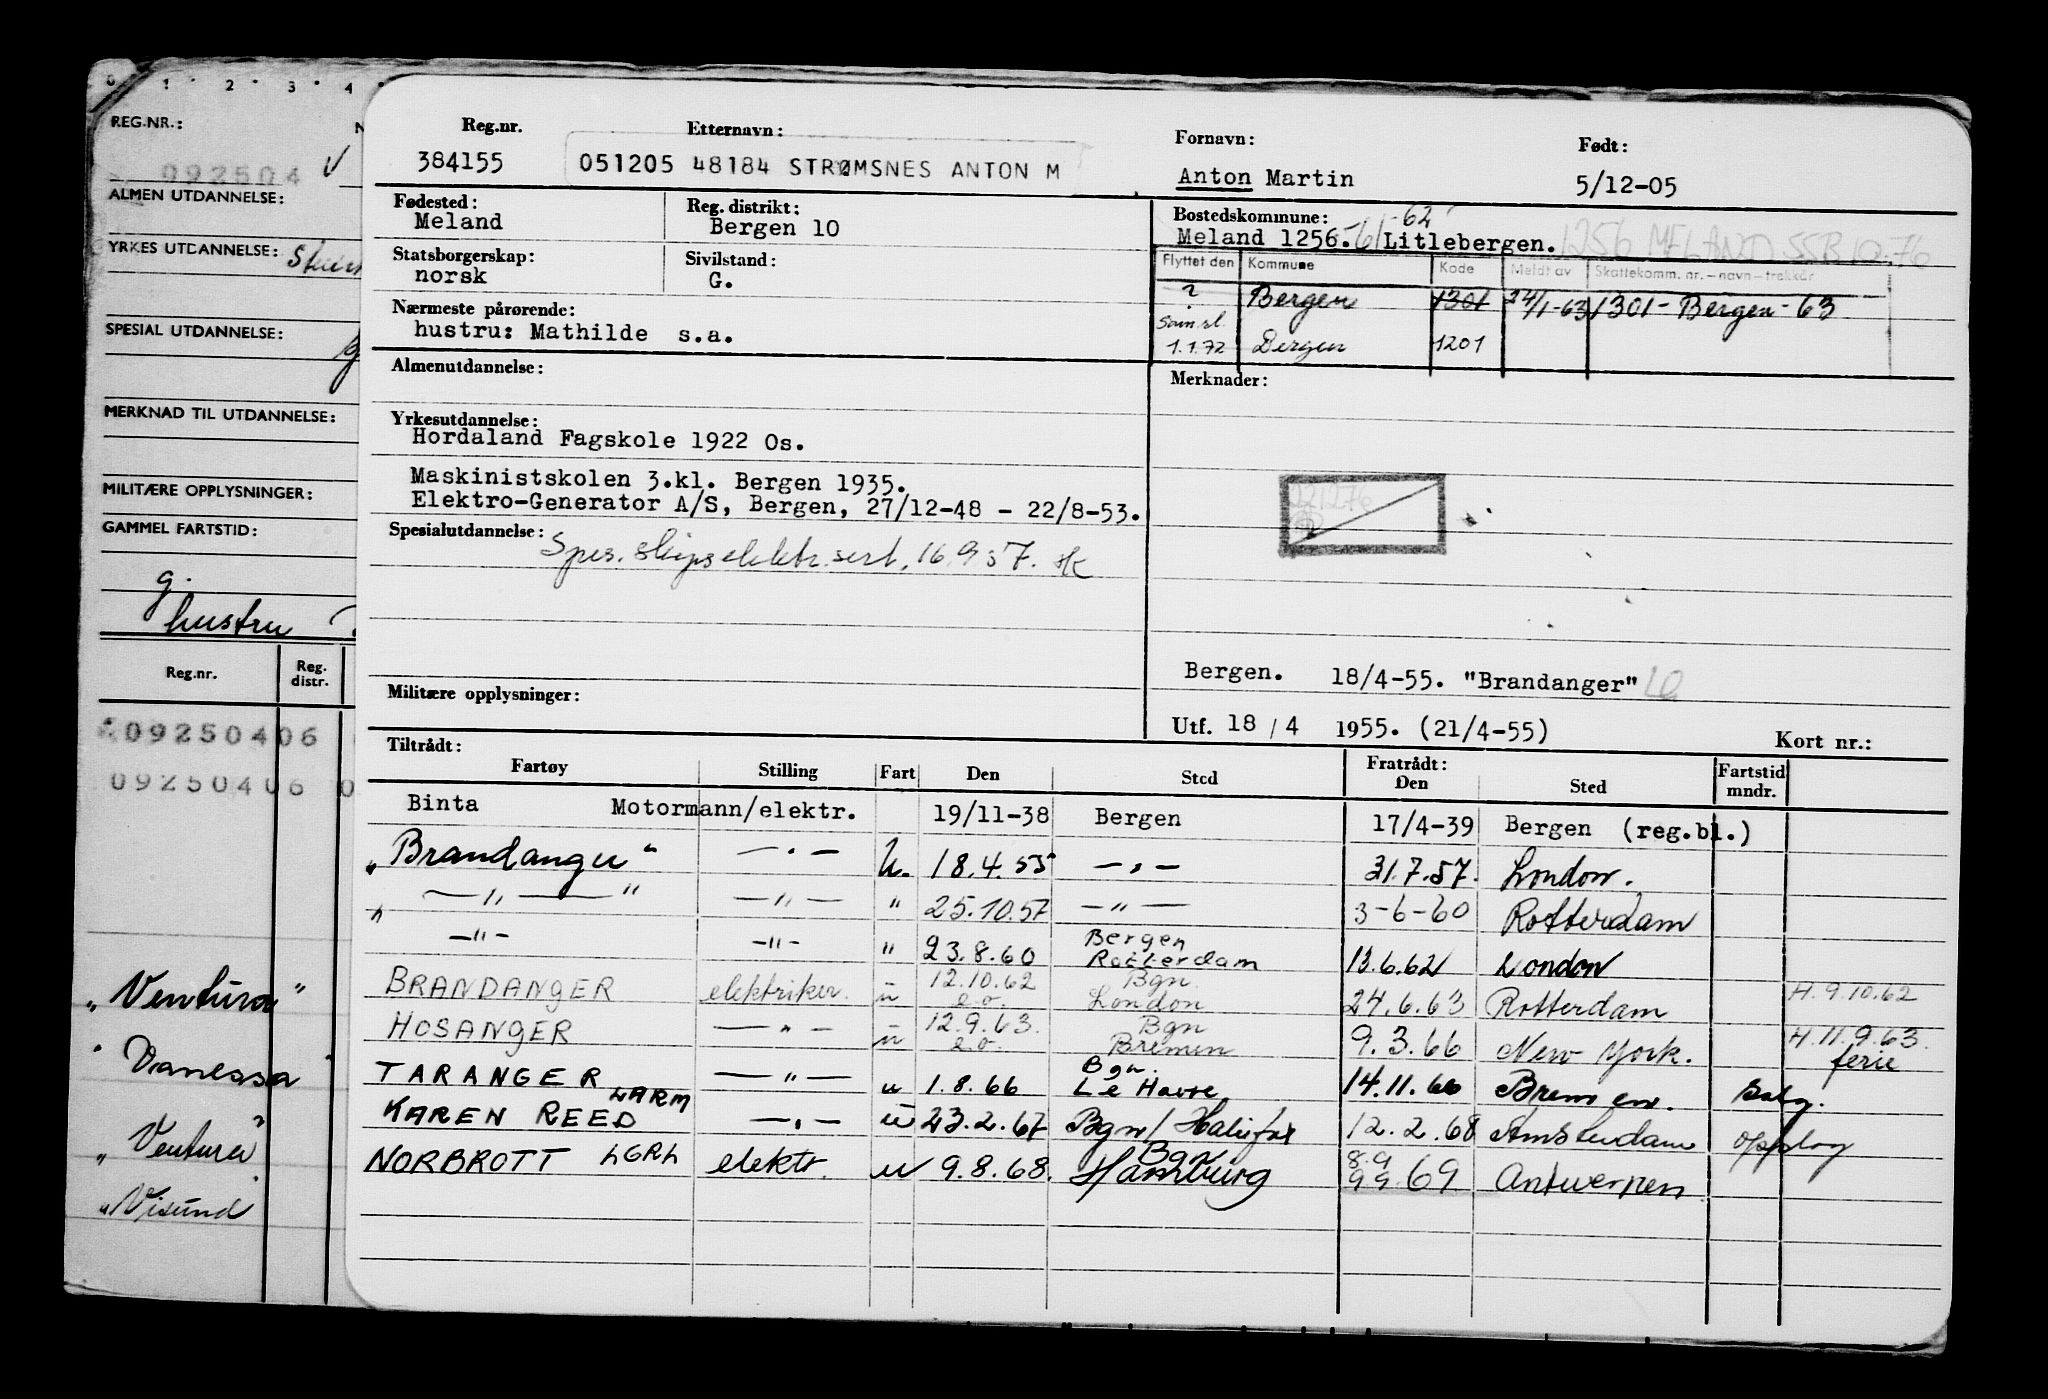 0 1 2 3 4
REG.NR.:
092504 V
ALMEN UTDANNELSE:
YRKES UTDANNELSE:
SPESIAL UTDANNELSE:
MERKNAD TIL UTDANNELSE:
MILITÆRE OPPLYSNINGER:
GAMMEL FARTSTID:
g.
hustru
Reg.nr. Reg. distr.
09250406
09250406 0
"Ventura"
"Vanessa"
"Ventura"
"Visund"
Reg.nr. Etternavn: Fornavn: Født:
384155 051205 48184 STRØMSNES ANTON M Anton Martin 5/12-05
Fødested: Reg. distrikt: Bostedskommune:
Meland Bergen 10 Meland 1256.-61-62 Litlebergen. 1256 MELAND SSB 10.76
Statsborgerskap: Sivilstand: Flyttet den Kommune Kode Meldt av Skattekomm. nr.-navn-trekkår
norsk G. ? Bergen 1301 24/1-63 1301-Bergen-63
Nærmeste pårørende: Sam.sl.
hustru: Mathilde s.a. 1.1.72 Bergen 1201
Almenutdannelse: Merknader:
Yrkesutdannelse:
Hordaland Fagskole 1922 Os.
Maskinistskolen 3.kl. Bergen 1935.
Elektro-Generator A/S, Bergen, 27/12-48 - 22/8-53.
221276
Spesialutdannelse: Spes. skipselektr. sert. 16.9.57.
Bergen. 18/4-55. "Brandanger"
Militære opplysninger:
Utf. 18 / 4 1955. (21/4-55) Kort nr.:
Tiltrådt: Fratrådt: Fartstid
Fartøy Stilling Fart Den Sted Den Sted mndr.
Binta Motormann/elektr. 19/11-38 Bergen 17/4-39 Bergen (reg.bl.)
"Brandanger" — " — U. 18.4.55 — " — 31.7.57. London.
" — " — " — " — " 25.10.57 — " — 3-6-60 Rotterdam
— " — — " — " 23.8.60 Bergen Rotterdam 13.6.62 London
BRANDANGER elektriker. u 12.10.62 e.o. Bgn. London 24.6.63 Rotterdam H.9.10.62
HOSANGER — " — u 12.9.63. e.o. Bgn Bremen 9.3.66 New York. H.11.9.63. ferie
TARANGER — " — u 1.8.66 Bgn. Le Havre 14.11.66 Bremen. Salg.
KAREN REED LARM — " — u 23.2.67 Bgn/ Halifax 12.2.68 Amsterdam opplag
NORBROTT LGRL elektr. u 9.8.68. Bgn Hamburg 8.9 9.9.69 Antwerpen